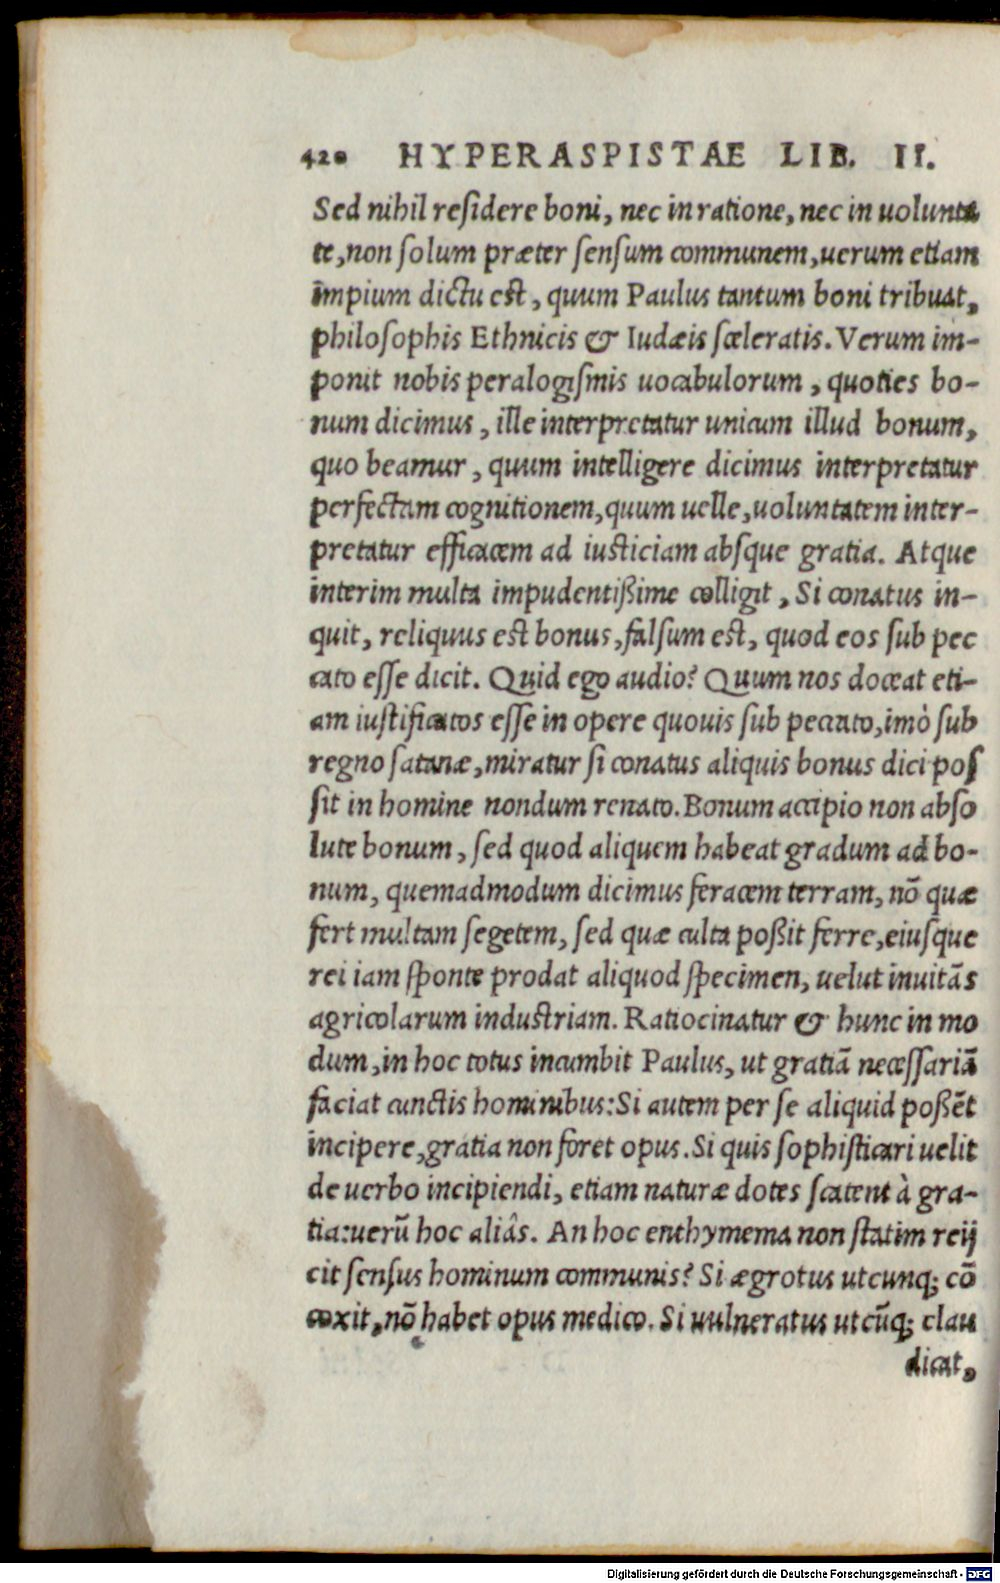 420 HYPERASPISTAE LIB. II.
Sed nihil residere boni, nec in ratione, nec in uolunta
te, non solum præter sensum communem, uerum etiam
impium dictu est, quum Paulus tantum boni tribuat,
philosophis Ethnicis & Iudæis sceleratis. Verum im-
ponit nobis peralogismis uocabulorum, quoties bo-
num dicimus, ille interpretatur unicum illud bonum,
quo beamur, quum intelligere dicimus interpretatur
perfectam cognitionem, quum uelle, uoluntatem inter-
pretatur efficacem ad iusticiam absque gratia. Atque
interim multa impudentißime colligit, Si conatus in-
quit, reliquus est bonus, falsum est, quod eos sub pec
cato esse dicit. Quid ego audio? Quum nos doceat eti-
am iustificatos esse in opere quouis sub peccato, imò sub
regno satanæ, miratur si conatus aliquis bonus dici pos
sit in homine nondum renato. Bonum accipio non abso
lute bonum, sed quod aliquem habeat gradum ad bo-
num, quemadmodum dicimus feracem terram, nō quæ
fert multam segetem, sed quæ culta poßit ferre, eiusque
rei iam sponte prodat aliquod specimen, uelut inuitās
agricolarum industriam. Ratiocinatur & hunc in mo
dum, in hoc totus incumbit Paulus, ut gratiā necessariā
faciat cunctis hominibus: Si autem per se aliquid poßēt
incipere, gratia non foret opus. Si quis sophisticari uelit
de uerbo incipiendi, etiam naturæ dotes scatent à gra-
tia: uerū hoc aliâs. An hoc enthymema non statim reij
cit sensus hominum communis? Si ægrotus utcunq; cō
coxit, nō habet opus medico. Si uulneratus utcūq; clau
dicat,
Digitalisierung gefördert durch die Deutsche Forschungsgemeinschaft - DFG